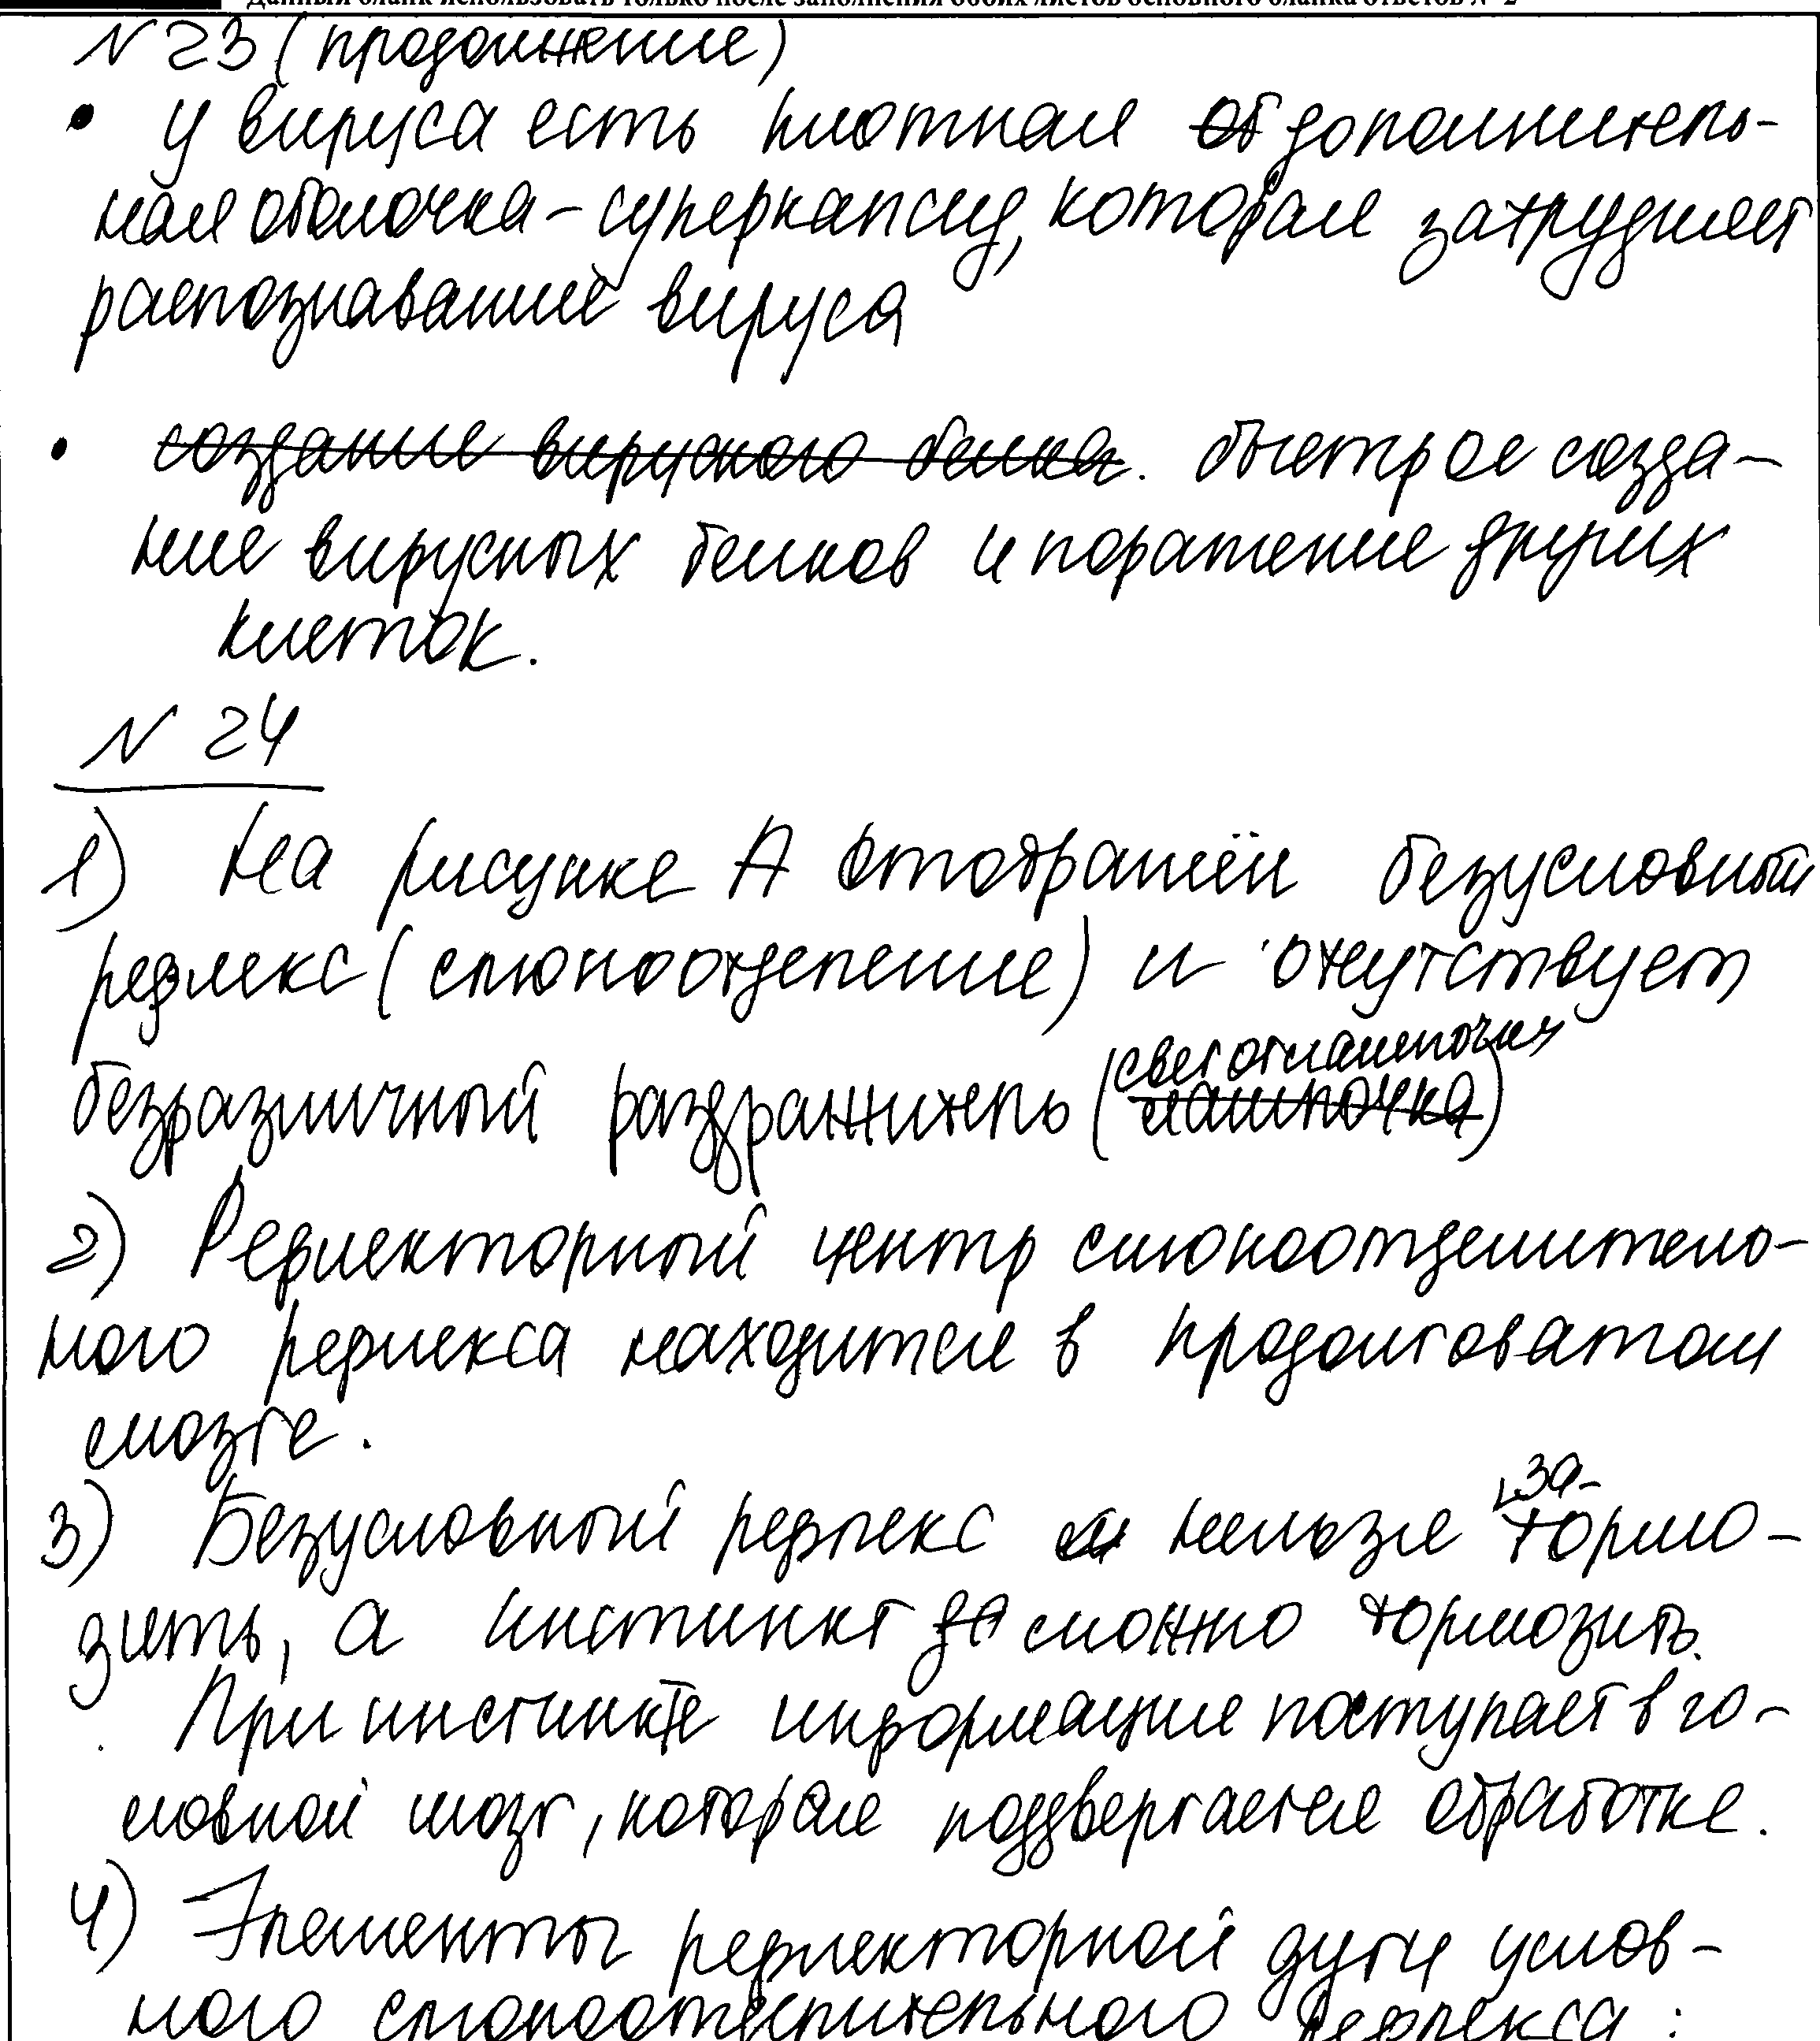 Данный бланк использовать только после заполнения обоих листов основного бланка ответов № 2
N 23 (продолжение)
• у вируса есть плотная об дополнитель-
ная оболочка – суперкапсид, которая затрудняет
распознавание вируса
• создание вирусного белка. быстрое созда-
ние вирусных белков и поражение других
клеток.
N 24
1) На рисунке А отображён безусловный
рефлекс (слюноотделение) и отсутствует
безразличный раздражитель (лампочка)
свет от лампочки
2) Рефлекторный центр слюноотделитель-
ного рефлекса находится в продолговатом
мозге.
3) Безусловный рефлекс нельзя за-тормо-
зить, а инстинкт за можно тормозить.
При инстинкте информация поступает в го-
ловной мозг, которая подвергается обработке.
4) Элементы рефлекторной дуги услов-
ного слюноотделительного рефлекса: